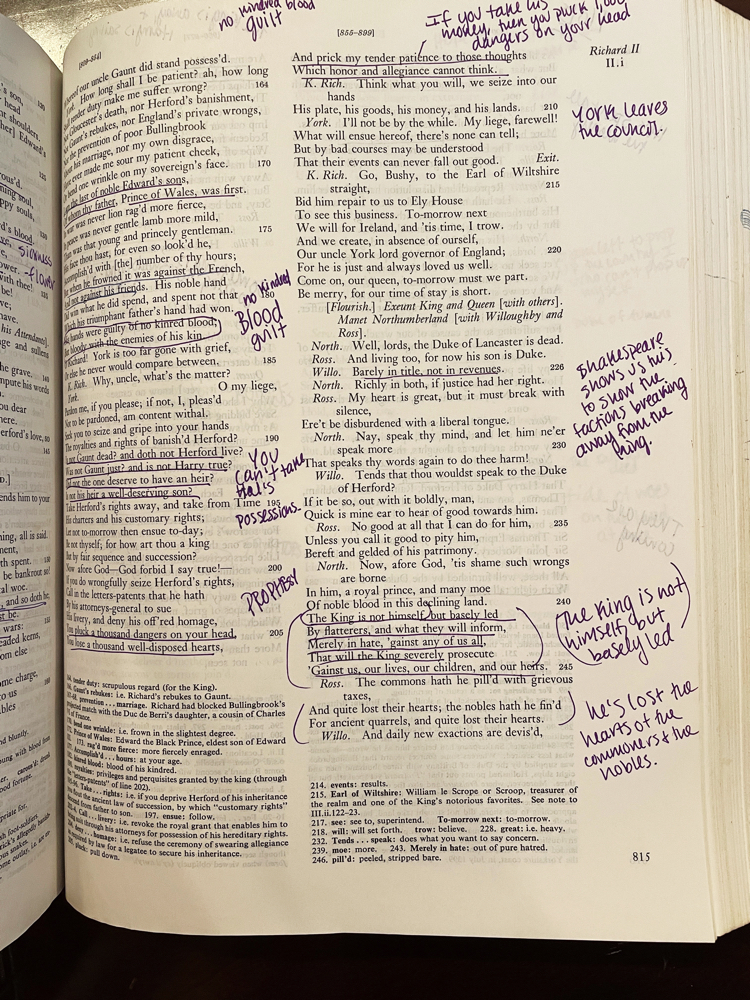 no kindred blood
guilt
If you take his
money, then you pluck 1,000
dangers on your head
[855–899]
Richard II
II.i
of our uncle Gaunt did stand possess'd.
How long shall I be patient? ah, how long
tender duty make me suffer wrong? 164
Gloucester's death, nor Herford's banishment,
Gaunt's rebukes, nor England's private wrongs,
the prevention of poor Bullingbrook
his marriage, nor my own disgrace,
ever made me sour my patient cheek,
bend one wrinkle on my sovereign's face. 170
the last of noble Edward's sons,
whom thy father, Prince of Wales, was first.
was never lion rag'd more fierce,
was never gentle lamb more mild,
was that young and princely gentleman. 175
face thou hast, for even so look'd he,
Accomplish'd with [the] number of thy hours;
when he frowned it was against the French,
And not against his friends. His noble hand
Did win what he did spend, and spent not that 180
Which his triumphant father's hand had won.
hands were guilty of no kindred blood,
But bloody with the enemies of his kin.
Richard! York is too far gone with grief,
Or else he never would compare between. 185
K. Rich. Why, uncle, what's the matter?
York. O my liege,
Pardon me, if you please; if not, I, pleas'd
Not to be pardoned, am content withal.
Seek you to seize and gripe into your hands
The royalties and rights of banish'd Herford? 190
Is not Gaunt dead? and doth not Herford live?
Was not Gaunt just? and is not Harry true?
Did not the one deserve to have an heir?
Is not his heir a well-deserving son?
Take Herford's rights away, and take from Time 195
His charters and his customary rights;
Let not to-morrow then ensue to-day;
Be not thyself; for how art thou a king
But by fair sequence and succession?
Now afore God—God forbid I say true!— 200
If you do wrongfully seize Herford's rights,
Call in the letters-patents that he hath
By his attorneys-general to sue
His livery, and deny his off'red homage,
You pluck a thousand dangers on your head, 205
You lose a thousand well-disposed hearts,
no kindred
Blood
guilt
You
can't take
Hal's
possessions.
PROPHESY
164. tender duty: scrupulous regard (for the King).
Gaunt's rebukes: i.e. Richard's rebukes to Gaunt.
prevention . . . marriage. Richard had blocked Bullingbrook's
projected match with the Duc de Berri's daughter, a cousin of Charles
of France.
bend one wrinkle: i.e. frown in the slightest degree.
Prince of Wales: Edward the Black Prince, eldest son of Edward
173. rag'd more fierce: more fiercely enraged.
Accomplish'd . . . hours: at your age.
kindred blood: blood of his kindred.
royalties: privileges and perquisites granted by the king (through
the "letters-patents" of line 202).
Take . . . rights: i.e. if you deprive Herford of his inheritance
the ancient law of succession, by which "customary rights"
descend from father to son. 197. ensue: follow.
Call . . . livery: i.e. revoke the royal grant that enables him to
through his attorneys for possession of his hereditary rights.
deny . . . homage: i.e. refuse the ceremony of swearing allegiance
by law for a legatee to secure his inheritance.
pluck: pull down.
And prick my tender patience to those thoughts
Which honor and allegiance cannot think.
K. Rich. Think what you will, we seize into our
hands
His plate, his goods, his money, and his lands. 210
York. I'll not be by the while. My liege, farewell!
What will ensue hereof, there's none can tell;
But by bad courses may be understood
That their events can never fall out good. Exit.
K. Rich. Go, Bushy, to the Earl of Wiltshire
straight, 215
Bid him repair to us to Ely House
To see this business. To-morrow next
We will for Ireland, and 'tis time, I trow.
And we create, in absence of ourself,
Our uncle York lord governor of England; 220
For he is just and always loved us well.
Come on, our queen, to-morrow must we part.
Be merry, for our time of stay is short.
[Flourish.] Exeunt King and Queen [with others].
Manet Northumberland [with Willoughby and
Ross].
North. Well, lords, the Duke of Lancaster is dead.
Ross. And living too, for now his son is Duke.
Willo. Barely in title, not in revenues. 226
North. Richly in both, if justice had her right.
Ross. My heart is great, but it must break with
silence,
Ere't be disburdened with a liberal tongue.
North. Nay, speak thy mind, and let him ne'er
speak more 230
That speaks thy words again to do thee harm!
Willo. Tends that thou wouldst speak to the Duke
of Herford?
If it be so, out with it boldly, man,
Quick is mine ear to hear of good towards him.
Ross. No good at all that I can do for him, 235
Unless you call it good to pity him,
Bereft and gelded of his patrimony.
North. Now, afore God, 'tis shame such wrongs
are borne
In him, a royal prince, and many moe
Of noble blood in this declining land. 240
The King is not himself, but basely led
By flatterers, and what they will inform,
Merely in hate, 'gainst any of us all,
That will the King severely prosecute
'Gainst us, our lives, our children, and our heirs. 245
Ross. The commons hath he pill'd with grievous
taxes,
And quite lost their hearts; the nobles hath he fin'd
For ancient quarrels, and quite lost their hearts.
Willo. And daily new exactions are devis'd,
214. events: results.
215. Earl of Wiltshire: William le Scrope or Scroop, treasurer of
the realm and one of the King's notorious favorites. See note to
III.ii.122–23.
217. see: see to, superintend. To-morrow next: to-morrow.
218. will: will set forth. trow: believe. 228. great: i.e. heavy.
232. Tends . . . speak: does what you want to say concern.
239. moe: more. 243. Merely in hate: out of pure hatred.
246. pill'd: peeled, stripped bare.
815
York leaves
the council.
Shakespeare
shows us this
to show the
factions breaking
away from the
king.
The King is not
himself, but
basely led
he's lost the
hearts of the
commoners & the
nobles.